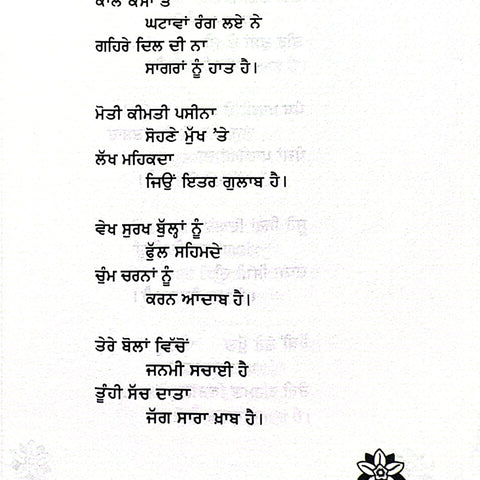 ਘਟਾਵਾਂ ਰੰਗ ਲਏ ਨੇ
ਗਹਿਰੇ ਦਿਲ ਦੀ ਨਾ
ਸਾਗਰਾਂ ਨੂੰ ਹਾਤ ਹੈ।
ਮੋਤੀ ਕੀਮਤੀ ਪਸੀਨਾ
ਸੋਹਣੇ ਮੁੱਖ 'ਤੇ
ਲੱਖ ਮਹਿਕਦਾ
ਜਿਉਂ ਇਤਰ ਗੁਲਾਬ ਹੈ।
ਵੇਖ ਸੁਰਖ ਬੁੱਲ੍ਹਾਂ ਨੂੰ
ਫੁੱਲ ਸਹਿਮਦੇ
ਚੁੰਮ ਚਰਨਾਂ ਨੂੰ
ਕਰਨ ਆਦਾਬ ਹੈ।
ਤੇਰੇ ਬੋਲਾਂ ਵਿੱਚੋਂ
ਜਨਮੀ ਸਚਾਈ ਹੈ
ਤੂੰਹੀ ਸੱਚ ਦਾਤਾ
ਜੱਗ ਸਾਰਾ ਖ਼ਾਬ ਹੈ।